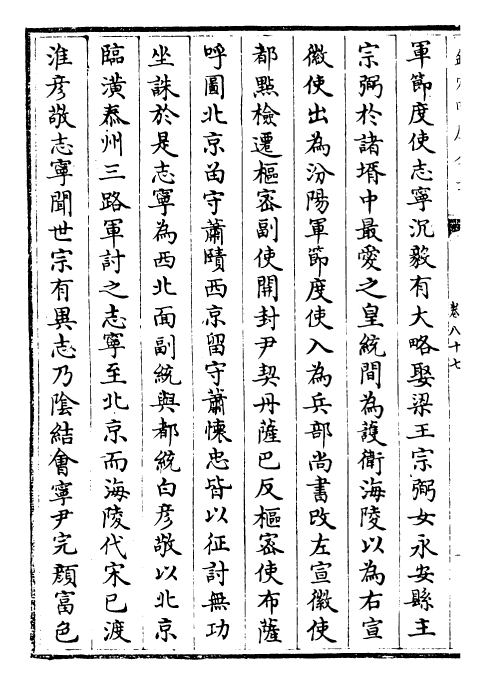 卷八十七
軍節度使志寧沉毅有大略娶梁王宗弼女永安縣主
宗弼於諸壻中最愛之皇統間為護衛海陵以為右宣
徽使出為汾陽軍節度使入為兵部尚書改左宣徽使
都點檢遷樞密副使開封尹契丹薩巴反樞密使布薩
呼圖北京留守蕭賾西京留守蕭懷忠皆以征討無功
坐誅於是志寧為西北面副統與都統白彦敬以北京
臨潢泰州三路軍討之志寧至北京而海陵伐宋已渡
淮彦敬志寧聞世宗有異志乃陰結會寧尹完顔富色